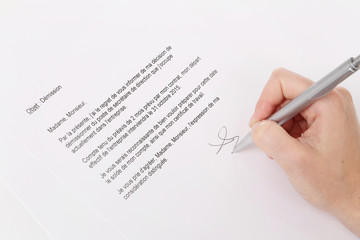 Objet : Démission
Madame, Monsieur,
Par la présente, j'ai le regret de vous informer de ma décision de
démissionner du poste de secrétaire de direction que j'occupe
actuellement dans l'entreprise.
Compte tenu du préavis de 2 mois prévu par mon contrat, mon départ
effectif de l'entreprise interviendra le 31 octobre 2015.
Je vous serais reconnaissante de bien vouloir préparer pour cette date
le solde de mon compte, ainsi que mon certificat de travail.
Je vous prie d'agréer, Madame, Monsieur, l'expression de ma
considération distinguée.